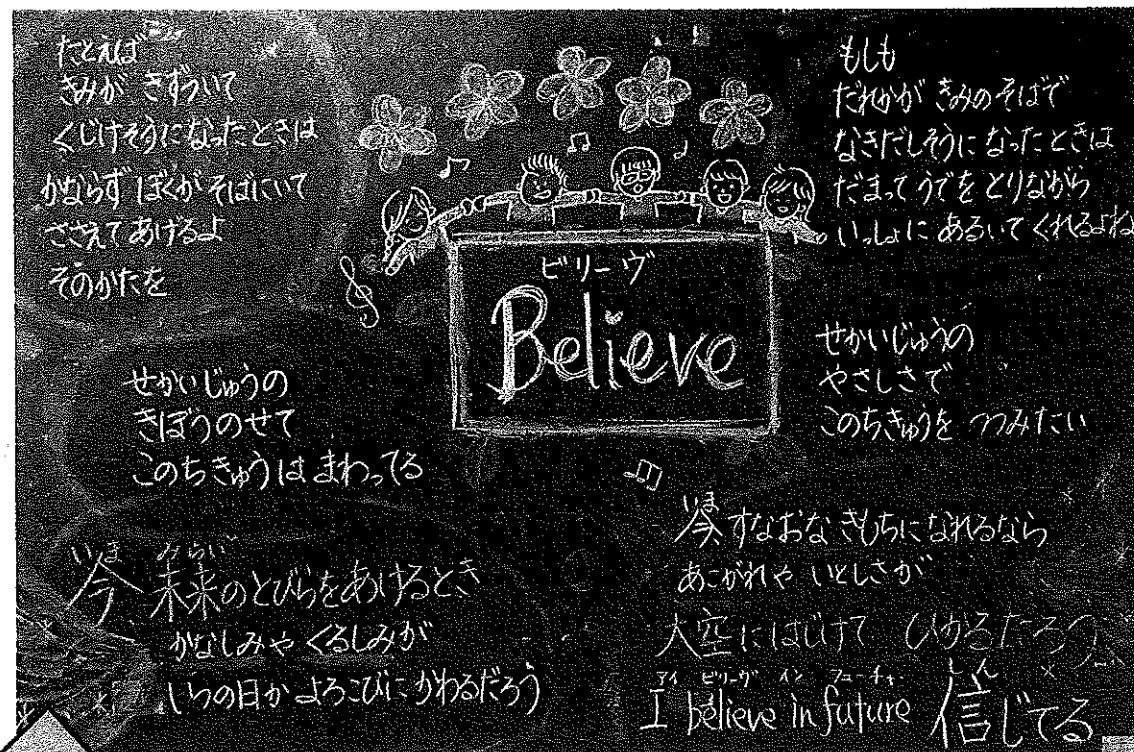 たとえば
きみが きずついて
くじけそうになったときは
かならず ぼくがそばにいて
ささえてあげるよ
そのかたを
せかいじゅうの
きぼうのせて
このちきゅうは まわってる
いま みらい
今 未来のとびらをあけるとき
かなしみや くるしみが
いつの日か よろこびに かわるだろう
ビリーヴ
Believe
もしも
だれかが きみのそばで
なきだしそうに なったときは
だまって うでを とりながら
いっしょに あるいて くれるよね
せかいじゅうの
やさしさで
このちきゅうを つつみたい
いま
今 すなおな きもちになれるなら
あこがれや いとしさが
大空にはじけて ひかるだろう
アイ ビリーヴ イン フューチャー しん
I believe in future 信じてる